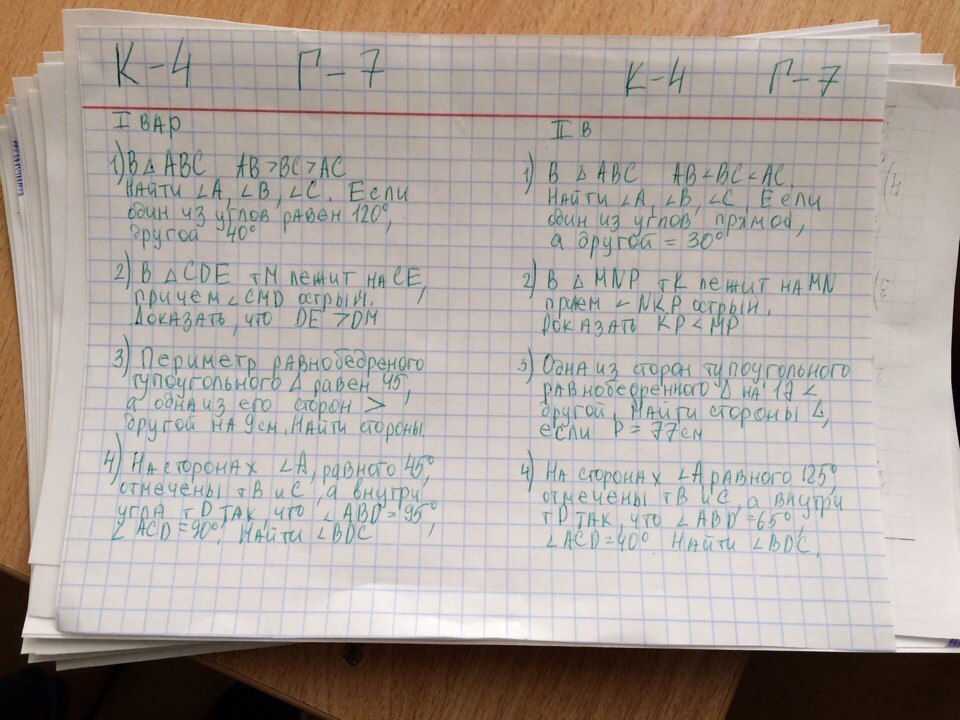 К-4 Г-7
I ВАР
1) В △ ABC AB > BC > AC
НАЙТИ ∠A, ∠B, ∠C. ЕСЛИ
один из углов равен 120°,
другой 40°
2) В △CDE тМ лежит на CE,
причем ∠CMD острый.
Доказать, что DE > DM
3) Периметр равнобедреного
тупоугольного △ равен 45,
а одна из его сторон >
другой на 9см. Найти стороны.
4) На сторонах ∠A, равного 45°,
отмечены тВ и С, а внутри
угла тD так, что ∠ABD = 95°,
∠ACD = 90°. Найти ∠BDC
К-4 Г-7
II В
1) В △ ABC AB < BC < AC.
Найти ∠A, ∠B, ∠C. Если
один из углов прямой,
а другой = 30°
2) В △ MNP тК лежит на MN
причем ∠ NKP острый.
Доказать KP < MP
3) Одна из сторон тупоугольного
равнобедренного △ на 17 <
другой. Найти стороны △,
если P = 77см
4) На сторонах ∠A равного 125°,
отмечены тВ и С, а внутри
тD так, что ∠ABD = 65°,
∠ACD = 40° Найти ∠BDC.